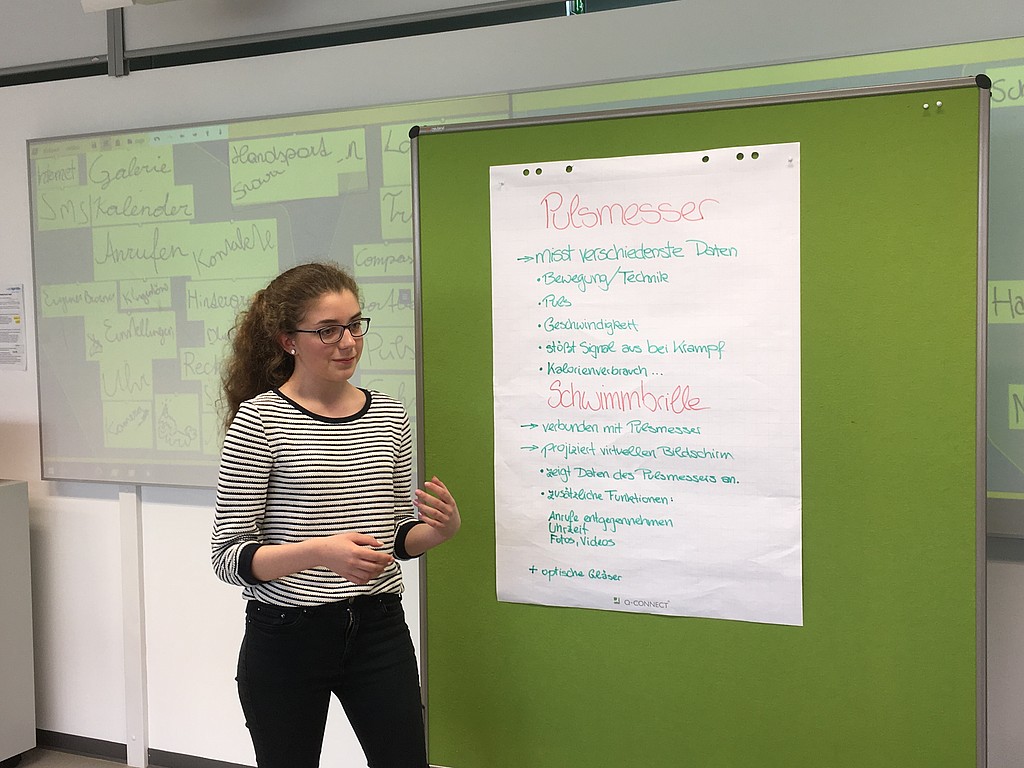 Pulsmesser
→ misst verschiedenste Daten
• Bewegung/Technik
• Puls
• Geschwindigkeit
• stößt Signal aus bei Krampf
• Kalorienverbrauch ...
Schwimmbrille
→ verbunden mit Pulsmesser
→ projiziert virtuellen Bildschirm
• zeigt Daten des Pulsmessers an.
• zusätzliche Funktionen:
Anrufe entgegennehmen
Uhrzeit
Fotos, Videos
+ optische Gläser
Q-CONNECT
Internet
Galerie
Handsport
SMS
Kalender
Anrufen
Kontakte
Einstellungen
Uhr
Puls